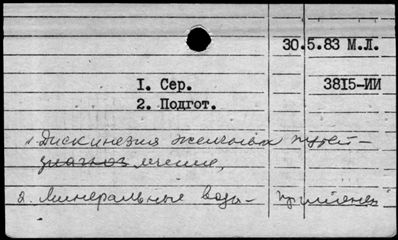 30.5.83 М.Л.
I. Сер. 3815-ИИ
2. Подгот.
1. Дискинезия желчных путей -
диагноз лечение,
2. Минеральные воды - примене